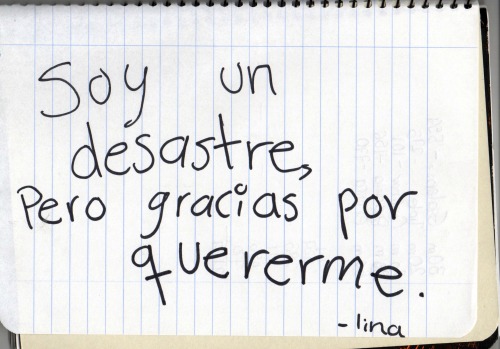 Soy un
desastre,
Pero gracias por
quererme.
-lina